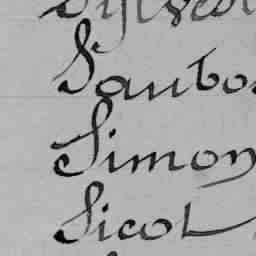 Sylves
Saubo
Simon
Sicot